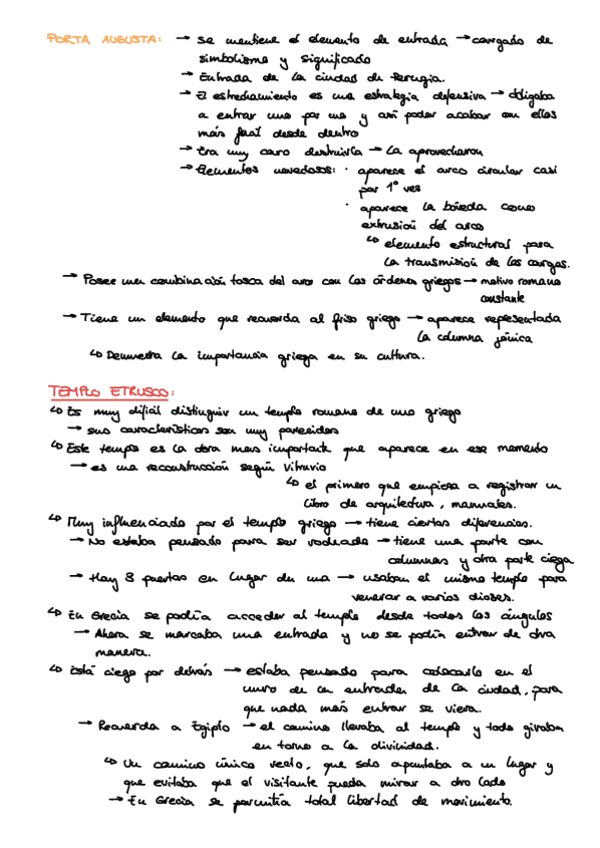 PORTA AUGUSTA: → se mantiene el elemento de entrada → cargado de
simbolismo y significado
→ Entrada de la ciudad de Perugia.
→ El estrechamiento es una estrategia defensiva → obligaba
a entrar uno por uno y así poder acabar con ellos
más fácil desde dentro
→ Era muy caro destruirla → la aprovecharon
→ Elementos novedosos: · aparece el arco circular casi
por 1º ves
· aparece la bóveda como
extrusión del arco
↳ elemento estructural para
la transmisión de las cargas.
→ Posee una combinación tosca del arco con los órdenes griegos → motivo romano
constante
→ Tiene un elemento que recuerda al friso griego → aparece representada
la columna jónica
↳ Demuestra la importancia griega en su cultura.
TEMPLO ETRUSCO:
↳ Es muy difícil distinguir un templo romano de uno griego
→ sus características son muy parecidas
↳ Este templo es la obra más importante que aparece en ese momento
→ es una reconstrucción según Vitruvio
↳ el primero que empieza a registrar un
libro de arquitectura, manuales.
↳ Muy influenciado por el templo griego → tiene ciertas diferencias.
→ No estaba pensado para ser rodeado → tiene una parte con
columnas y otra parte ciega
→ Hay 3 puertas en lugar de una → usaban el mismo templo para
venerar a varios dioses.
↳ En Grecia se podía acceder al templo desde todos los ángulos
→ Ahora se marcaba una entrada y no se podía entrar de otra
manera.
↳ Está ciego por detrás → estaba pensado para colocarlo en el
muro de la entrada de la ciudad, para
que nada más entrar se viera.
→ Recuerda a Egipto → el camino llevaba al templo y todo giraba
en torno a la divinidad.
↳ Un camino único recto, que solo apuntaba a un lugar y
que evitaba que el visitante pueda mirar a otro lado
→ En Grecia se permitía total libertad de movimiento.